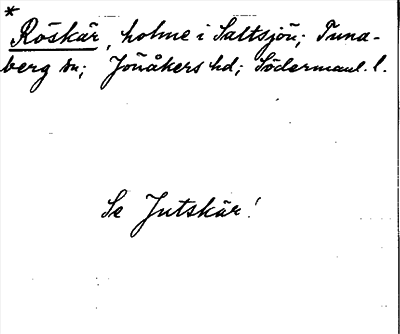 *
Röskär, holme i Saltsjön; Tuna-
berg sn; Jönåkers hd; Södermanl. l.
Se Jutskär!